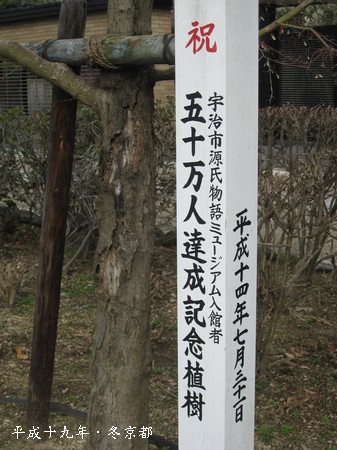 祝
宇治市源氏物語ミュージアム入館者
五十万人達成記念植樹
平成十四年七月三十一日
平成十九年・冬京都